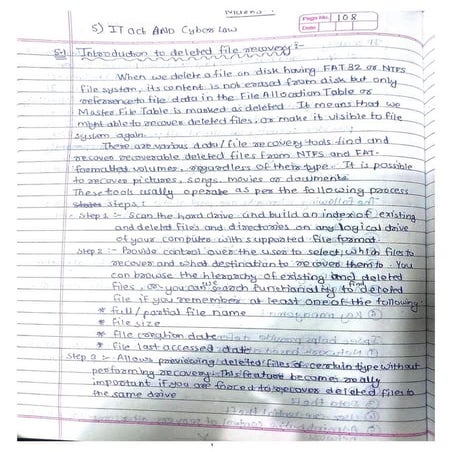 Page No. 108
Date
5) IT act AND Cyber law
5.1 Introduction to deleted file recovery :-
When we delete a file on disk having FAT32 or NTFS
file system, its content is not erased from disk but only
reference to file data in the File Allocation Table or
Master File Table is marked as deleted. It means that we
might able to recover deleted files, or make it visible to file
system again.
There are various data/file recovery tools find and
recover recoverable deleted files from NTFS and FAT-
formatted volumes, regardless of their type. It is possible
to recover pictures, song, movies or documents.
These tools usally operate as per the following process
steps :
Step 1 :- Scan the hard drive and build an index of existing
and deleted files and directories on any logical drive
of your computer with supported file format.
Step 2 :- Provide control over the user to select, which files to
recover and what destination to recover them to. You
can browse the hierarchy of existing and deleted
files, or you can use search functionality to find deleted
file if you remember at least one of the following:
* full/partial file name
* file size
* file creation date
* file last accessed date
Step 3 :- Allows previewing deleted files of certain type without
performing recovery. This feature becomes really
important if you are forced to recover deleted files to
the same drive